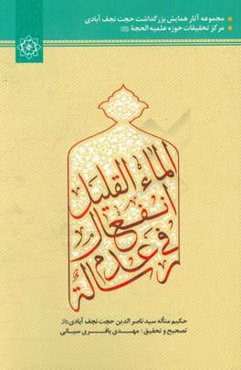 مجموعه آثار همایش بزرگداشت حجت نجف آبادی
مرکز تحقیقات حوزه علمیه الحجة
رسالة
في عدم
انفعال
الماء القليل
حکیم متأله سید ناصر الدین حجت نجف آبادی
تصحیح و تحقیق: مهدی باقری سیانی